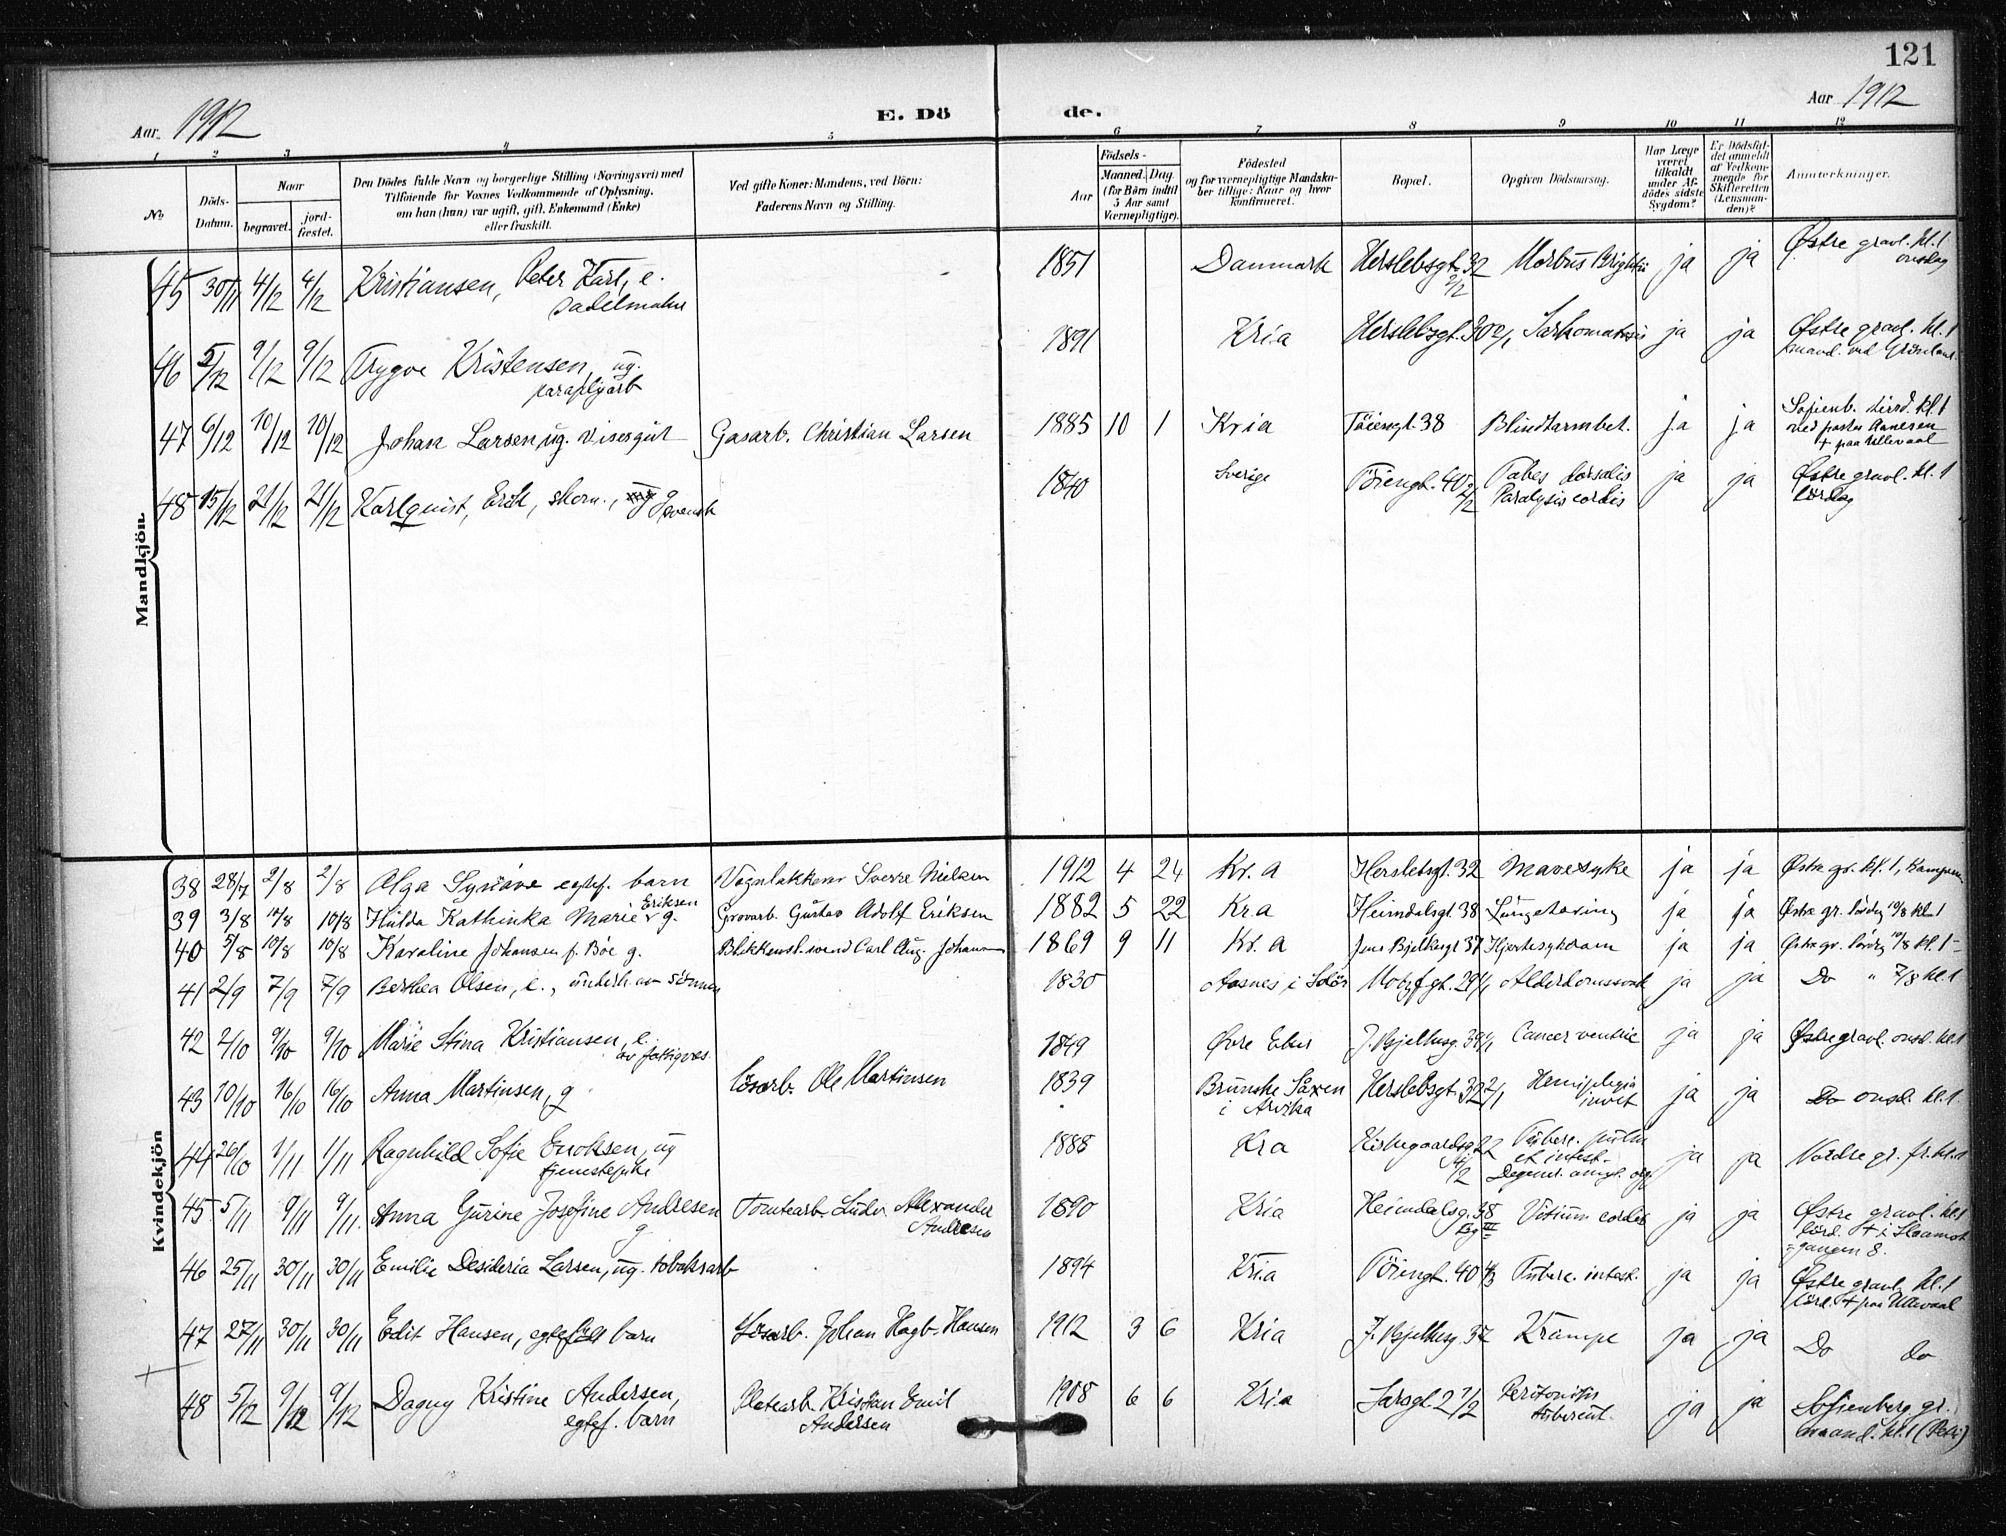 121
Aar 1912
E. Dö de.
Aar 1912
1 2 3 4 5 6 7 8 9 10 11 12
No.
Döds-Datum.
Naar
begravet.
jord-fæstet.
Den Dödes fulde Navn og borgerlige Stilling (Næringsvei) med
Tilföiende for Voxnes Vedkommende af Oplysning,
om han (hun) var ugift, gift, Enkemand (Enke)
eller fraskilt.
Ved gifte Koner: Mandens, ved Börn:
Faderens Navn og Stilling.
Födsels-
Aar
Maaned. Dag.
(for Börn indtil
5 Aar samt
Værnepligtige).
Födested
og for værnepligtige Mandska-
ber tillige: Naar og hvor
konfirmeret.
Bopæl.
Opgiven Dödsaarsag.
Har Læge
været
tilkaldt
under Af-
dödes sidste
Sygdom?
Er Dödsfal-
det anmeldt
af Vedkom-
mende for
Skifteretten
(Lensman-
den)?
Anmærkninger.
Mandkjön.
45 30/11 4/12 4/12 Kristiansen, Peter Karl, e. sadelmaker 1851 Danmark Herslebsgt. 32 2/2 Morbus Brightii ja ja Østre gravl. kl. 1 onsdag
46 5/12 9/12 9/12 Trygve Kristensen, ug. paraplyarb 1891 Kria Herslebsgt. 30 2/1 Sarkomatosis ja ja Østre gravl. kl. 1 maand. ved
47 6/12 10/12 10/12 Johan Larsen, ug. visergut Gasarb. Christian Larsen 1885 10 1 Kria Töiengt. 38 Blindtarmbet. ja ja Sofienb. tirsd. kl. 1 ved pastor + paa Ullevaal
48 15/12 21/12 21/12 Karlquist, Erik, skom., g svensk 1840 Sverige Töiengt. 40 2/2 Tabes dorsalis Paralysis cordis ja ja Østre gravl. kl. 1 lördag
Kvindekjön
38 28/7 2/8 2/8 Alga Synöve egtef. barn Vognlakkerer Sverre Nielsen 1912 4 24 Kr.a Herslebsgt. 32 Mavesyke ja ja Østre gr. kl. 1, Kampen
39 3/8 10/8 10/8 Hulda Kathinka Marie Eriksen g. Grovarb. Gustav Adolf Eriksen 1882 5 22 Kr.a Heimdalsgt. 38 Lungetæring ja ja Østre gr. lördag 10/8 kl. 1
40 5/8 10/8 10/8 Karoline Johansen f. Böe g. Blikkensl.svend Carl Aug. Johansen 1869 9 11 Kr.a Jens Bjelkesgt 37 Hjertesygdom ja ja Østre gr. lördag 10/8 kl. 1
41 2/9 7/9 7/9 Berthea Olsen, e., underh. av sönnen 1830 Aasnes i Solör Motzfgt. 29 4/1 Alderdomssvak ja ja Do " 7/8 kl. 1
42 2/10 9/10 9/10 Marie Stina Kristiansen, e. av fattigves. 1849 Øvre J. Bjelkesg. 39 4/1 Cancer ventric ja ja Østre gravl. onsd. kl. 1
43 10/10 16/10 16/10 Anna Martinsen, g lösarb. Ole Martinsen 1839 Brunske i Arvika Herslebsgt. 32 2/1 Hemiplegia ja ja Do onsd. kl. 1.
44 26/10 1/11 1/11 Ragnhild Sofie Enoksen, ug tjenestepike 1888 Kra Kirkegaardsg. 22 Tuberc. pulm et intest. Degenr. amyl. org. ja ja Nordre gr. fr. kl. 1
45 5/11 9/11 9/11. Anna Gurine Josefine Andresen g Tomtearb. Ludv. Alexander Andresen 1890 Kria Heimdalsg. 38 Vitium cordis ja ja Østre gravl. kl. 1 lörd. + i gangen 8.
46 25/11 30/11 30/11 Emilie Desideria Larsen, ug. tobaksarb 1894 Kria Töiengt. 40 4/3 Tuberc. intest. ja ja Østre gravl. kl. 1 lörd. + paa Ullevaal
47 27/11 30/11 30/11 Edit Hansen, egtef barn Lösarb. Johan Hagb. Hansen 1912 3 6 Kria J. Bjelkesg. 37 Krampe ja ja Do do
48 5/12 9/12 9/12 Dagny Kristine Andersen, egtef. barn Platearb. Kristian Emil Andersen 1908 6 6 Kria Sarsgt. 2 1/2 Peritonitis tubercul. ja ja Sofienberg gr. maand. kl. 1